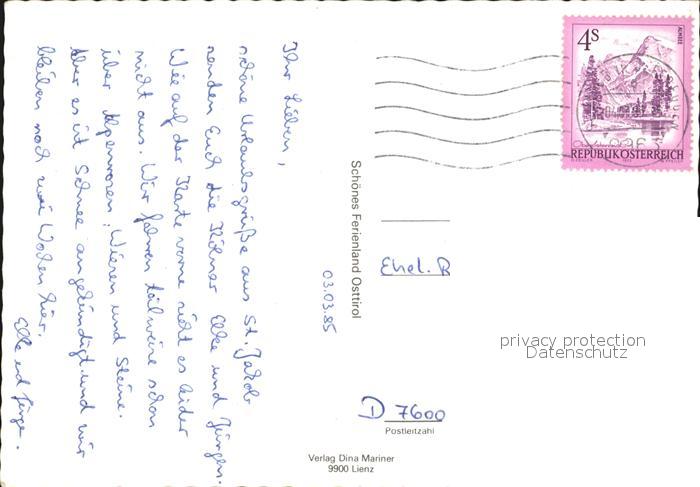 Ihr Lieben,
schöne Urlaubsgrüße aus St. Jakob
senden Euch die Kölner Elke und Jürgen.
Wie auf der Karte vorne sieht es leider
nicht aus. Wir fahren teilweise schon
über Alpenrosen, Wiesen und Steine.
Aber es ist Schnee angekündigt und wir
bleiben noch zwei Wochen hier.
Elke und Jürgen.
03.03.85
Schönes Ferienland Osttirol
4S
ALMSEE
REPUBLIK ÖSTERREICH
Ehel. R
privacy protection
Datenschutz
D 7600
Postleitzahl
Verlag Dina Mariner
9900 Lienz